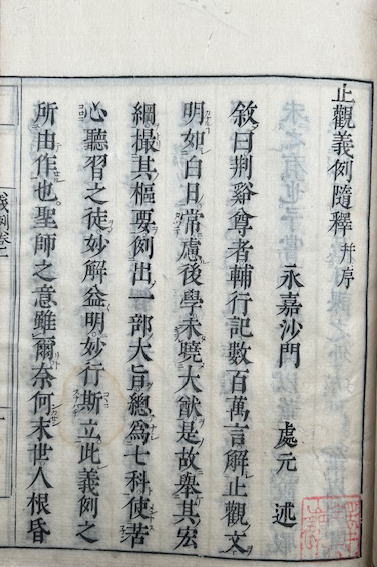 止觀義例隨釋 并序
永嘉沙門 處元 述
敘曰荆谿尊者輔行記數百萬言解止觀文
明如白日常慮後學未曉大猷是故舉其宏
綱撮其樞要例出一部大旨總爲七科使苦
心聽習之徒妙解益明妙行斯立此義例之
所由作也聖師之意雖爾奈何末世人根昏